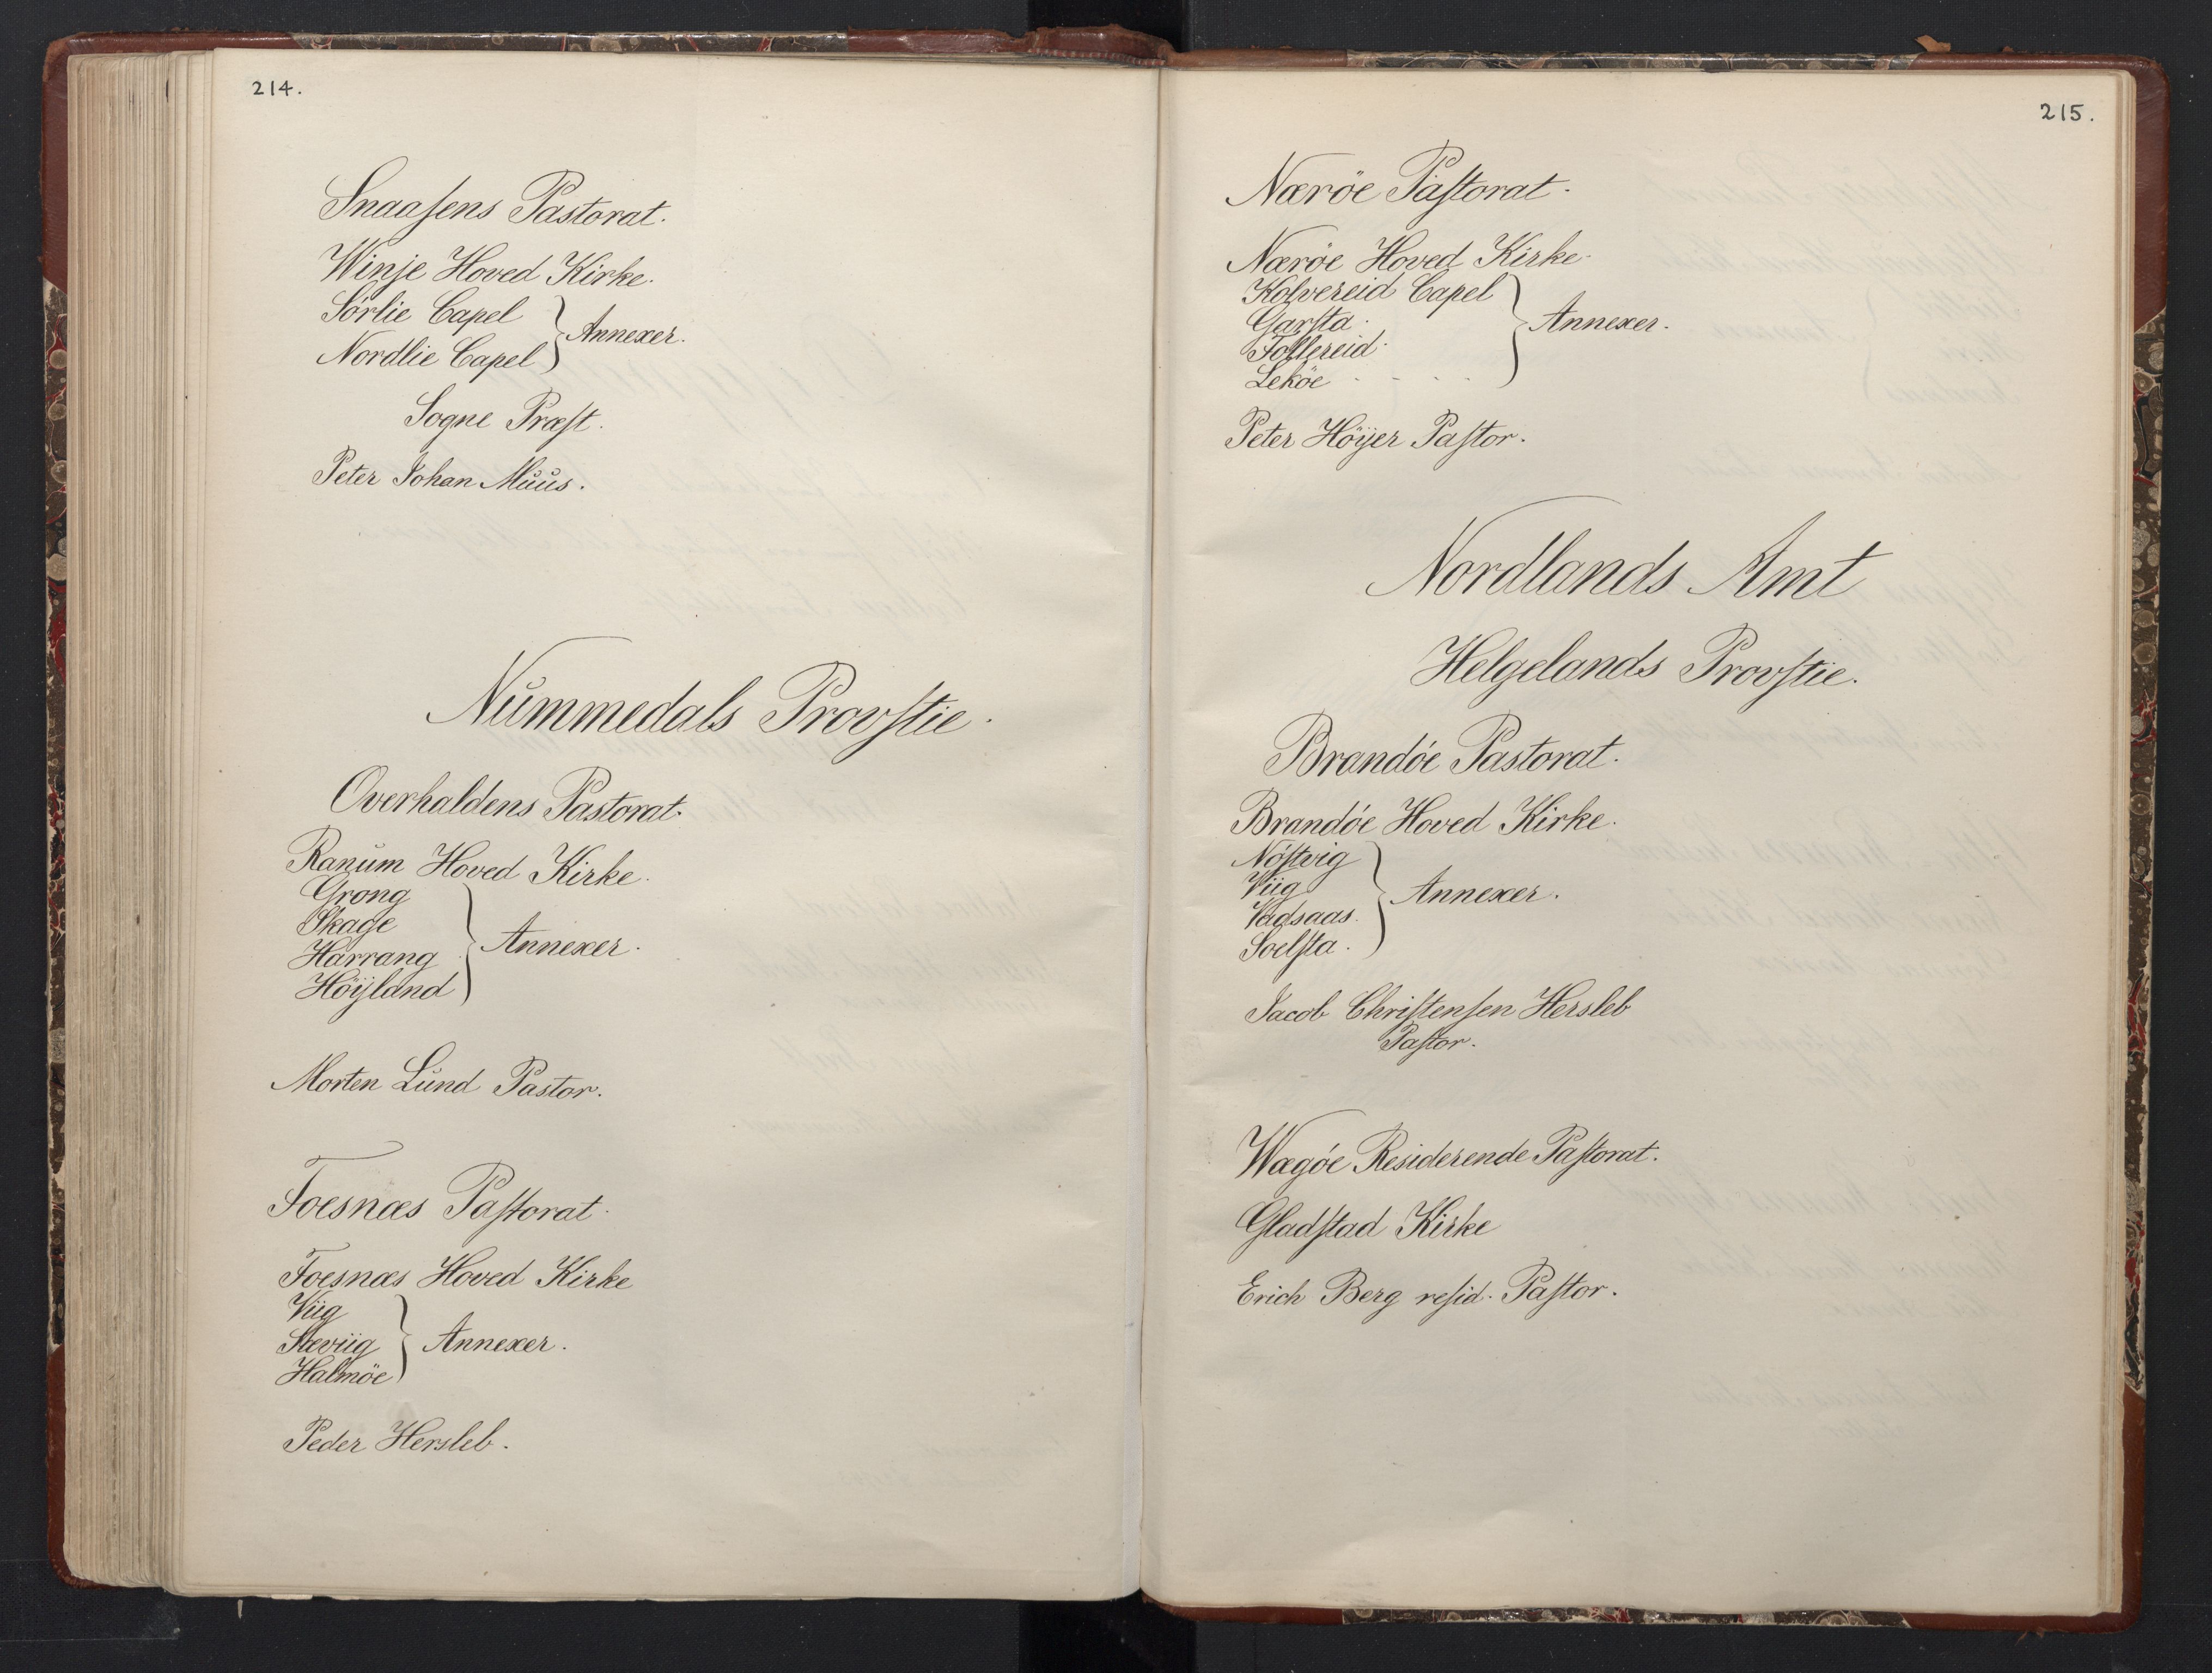 214.
Snaasens Pastorat.
Winje Hoved Kirke.
Sörlie Capel
Nordlie Capel } Annexer.
Sogne Præst.
Peter Johan Muus.
Nummedals Provstie.
Overhaldens Pastorat.
Ranum Hoved Kirke.
Grong
Skage
Harrang } Annexer.
Höijland
Morten Lund Pastor.
Foesnæs Pastorat.
Foesnæs Hoved Kirke
Viig
Sæviig } Annexer.
Halmöe
Peder Hersleb.
215.
Næröe Pastorat.
Næröe Hoved Kirke.
Kolvereid Capel
Garsta. } Annexer.
Follereid.
Leköe - - - -
Peter Höijer Pastor.
Nordlands Amt
Helgelands Provstie.
Brandöe Pastorat.
Brandöe Hoved Kirke.
Nöstvig
Viig } Annexer.
Vadsaas.
Soelsta.
Jacob Christensen Hersleb
Pastor.
Wægöe Residerende Pastorat.
Gladstad Kirke
Erich Berg resid. Pastor.